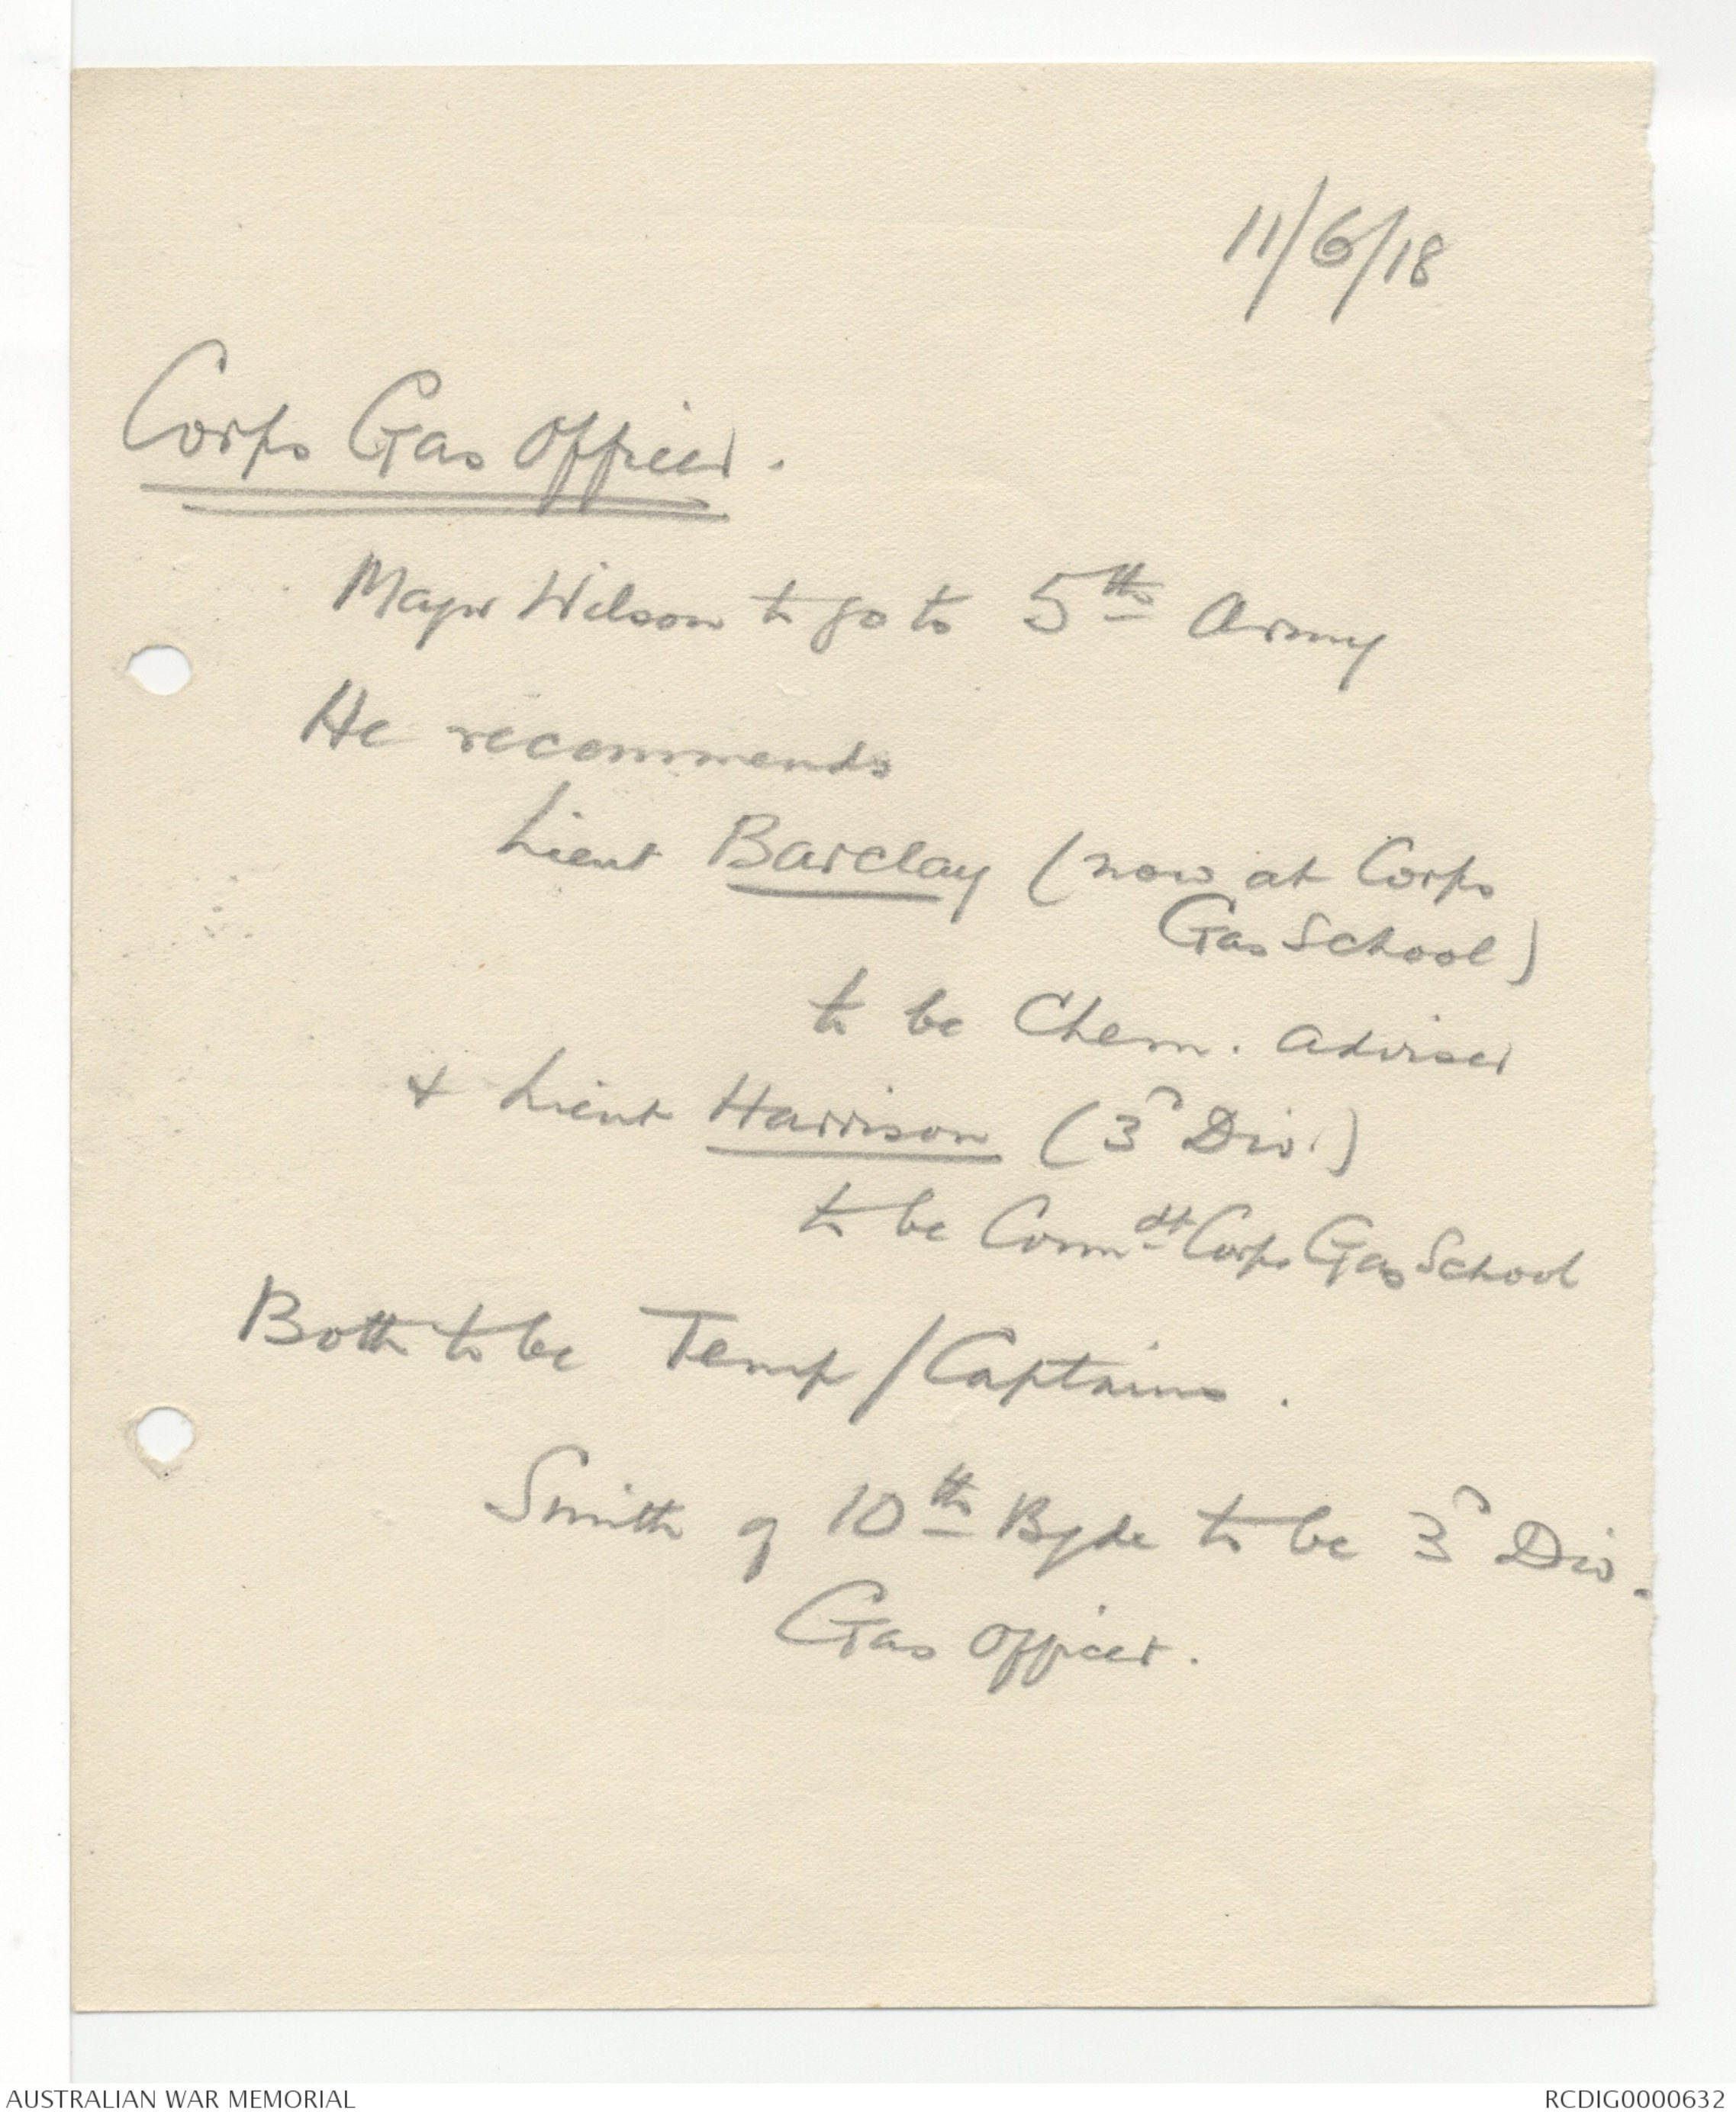 11/6/18
Corps Gas Officer.
Major Wilson to go to 5th Army
He recommends
Lieut Barclay (now at Corps
Gas School)
to be Chem. Adviser
& Lieut Harrison (3rd Div.)
to be Commdt Corps Gas School
Both to be Temp/Captains.
Smith of 10th Bgde to be 3rd Div.
Gas Officer.
AUSTRALIAN WAR MEMORIAL
RCDIG0000632